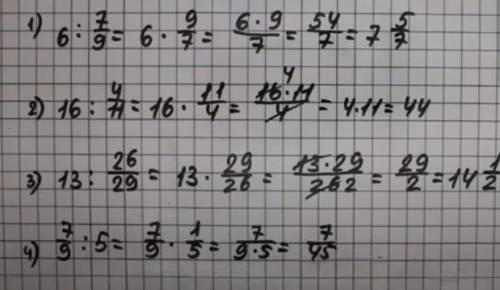 1) 6 : 7/9 = 6 · 9/7 = 6·9/7 = 54/7 = 7 5/7
2) 16 : 4/11 = 16 · 11/4 = 4 16·11/4 = 4·11 = 44
3) 13 : 26/29 = 13 · 29/26 = 13·29/26 2 = 29/2 = 14 1/2
4) 7/9 : 5 = 7/9 · 1/5 = 7/9·5 = 7/45